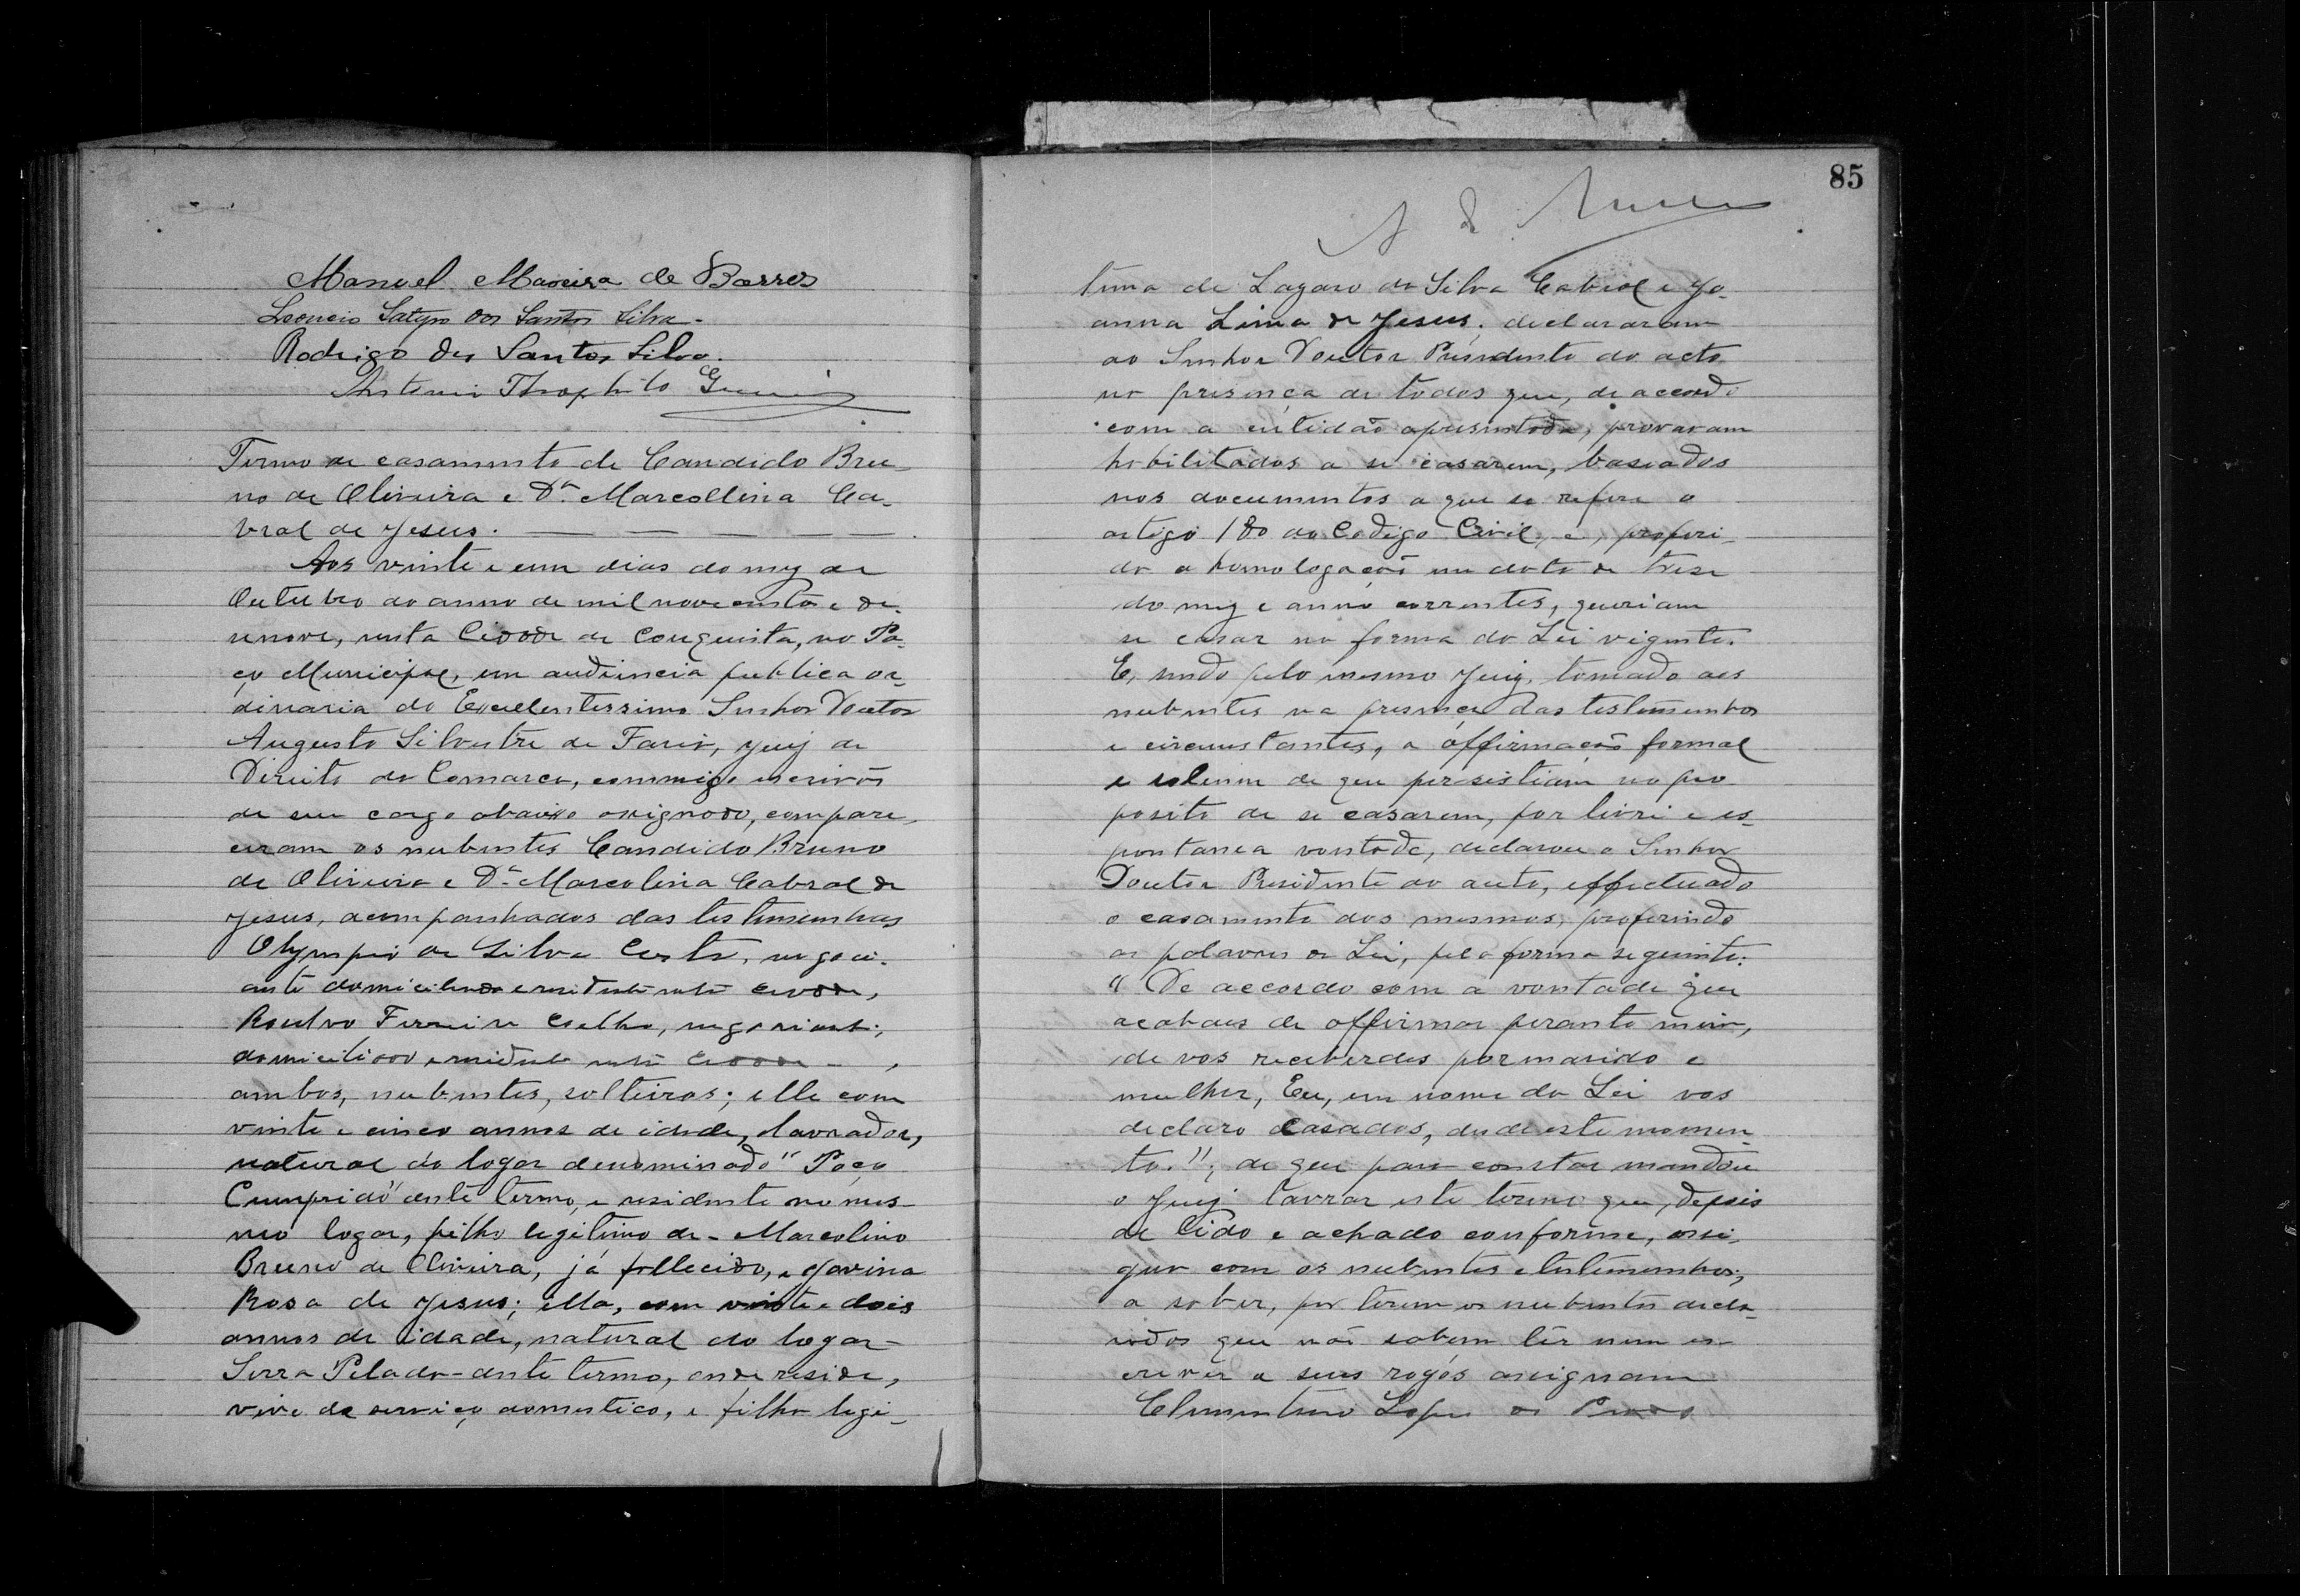 Manuel Maoeira de Barros
Leoncio Satyro dos Santos Silva.
Rodrigo dos Santos Silva.
Antonio Theophilo
Termo de casamento de Candido Bru-
no de Oliveira e Dª Marcollina Ca-
bral de Jesus.
Aos vinte e um dias do mez de
Outubro do anno de mil novecentos e de-
senove, nesta Cidade de Conquista, no Pa-
ço Municipal, em audiencia publica or-
dinaria do Excelentissimo Senhor Doutor
Augusto Silvestre de Faria, Juiz de
Direito da Comarca, commigo escrivão
de seu cargo abaixo assignado, compare-
ceram os nubentes Candido Bruno
de Oliveira e Dª Marcolina Cabral de
Jesus, acompanhados das testemunhas
Olympio da Silva Costa, negoci-
ante domiciliado e residente nesta cidade,
Ferreira Coelho, negociante,
domiciliado e residente nesta cidade,
ambos, nubentes, solteiros; elle com
vinte e cinco annos de idade, lavrador,
natural do logar denominado "Poço
Cumprido" deste termo, e residente no mes-
mo logar, filho legitimo de - Marcolino
Bruno de Oliveira, já fallecido, e Jovina
Rosa de Jesus; ella, com vinte e dois
annos de idade, natural do logar -
Serra Pelada - deste termo, onde reside,
vive de serviço domestico, e filha legi-
85
tima de Lazaro da Silva Cabral e Jo-
anna Lima de Jesus. declararam
ao Senhor Doutor Presidente do acto
na presença de todos que, de accordo
com a certidão apresentada, provaram
habilitados a se casarem, baseados
nos documentos a que se refere o
artigo 180 do Codigo Civil, e, proferi-
da a homologação em data de trese
do mez e anno correntes, queriam
se casar na forma da Lei vigente.
E, sendo pelo mesmo Juiz, tomado aos
nubentes na presença das testemunhas
e circumstantes, a affirmação formal
e solemne de que persistiam no pro-
posito de se casarem, por livre e es-
pontanea vontade, declarou o Senhor
Doutor Presidente do acto, effectuado
o casamento dos mesmos, proferindo
as palavras da Lei, pela forma seguinte:
"De accordo com a vontade que
acabaes de affirmar perante mim,
de vos receberdes por marido e
mulher, Eu, em nome da Lei vos
declaro casados, desde este momen-
to."; de que para constar mandou
o Juiz lavrar este termo que, depois
de lido e achado conforme, assi-
gna com os nubentes e testemunhas;
a saber, por terem os nubentes decla-
rados que não sabem lêr nem es-
crever a seus rogos assignam
Clementino Lopes de